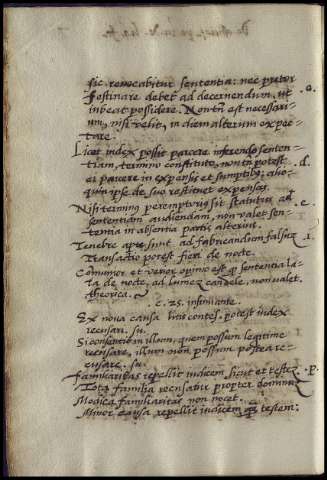 sic reuocabitur sententia: nec prętor
festinare debet ad decernendum, ut
iubeat possidere. Non tñ est necessari-
um, nisi velit, in diem alterum expec-
tare.
Licet iudex possit parcere in ferendo senten-
tiam, termino constituto, non tñ potest
ei parcere in expensis et sumptibus; alio-
quin ipse de suo restituet expensas.
d.
Nisi terminus peremptorius sit statutus ad
sententiam audiendam, non valet sen-
tentia in absentia partis alterius.
e.
Tenebre aptę sunt ad fabricandum falsum
Transactio potest fieri de nocte.
Comunior et verior opinio est quod sententia la-
ta de nocte, ad lumen candele, non valet.
theorica.
c. 25. insinuante.
Ex noua causa litis contes. potest iudex
recusari. su.
Si consentio in illum, quem possum legitime
recusare, illum non possum postea re-
cusare. su.
Familiaritas repellit iudicem sicut et testem. p.
Tota familia recusatur propter dominum
Modica familiaritas non nocet.
Minor causa repellit iudicem quam testem: